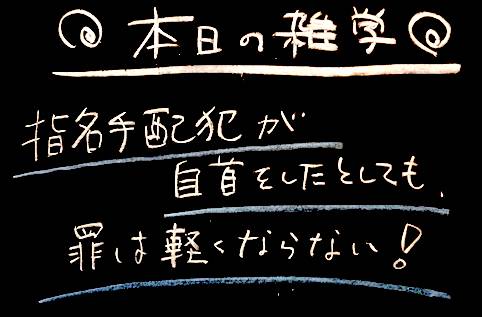 本日の雑学
指名手配犯が
自首をしたとしても、
罪は軽くならない!